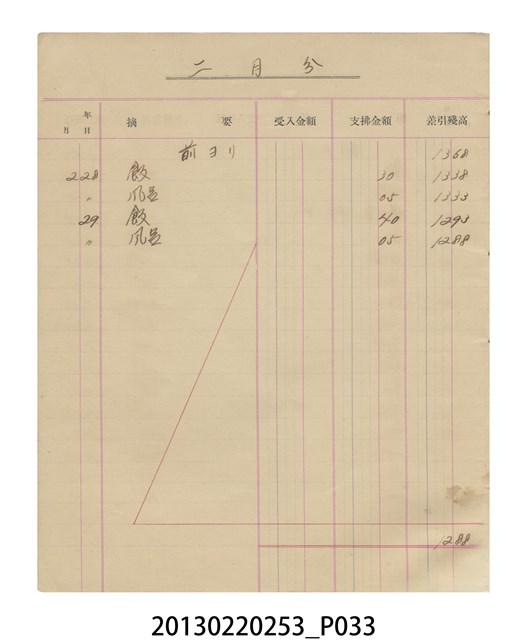 二月分
年 月 日 摘要 受入金額 支拂金額 差引残高
前ヨリ 1368
2 28 飯 30 1338
〃 風呂 05 1333
29 飯 40 1293
〃 風呂 05 1288
1288
20130220253_P033